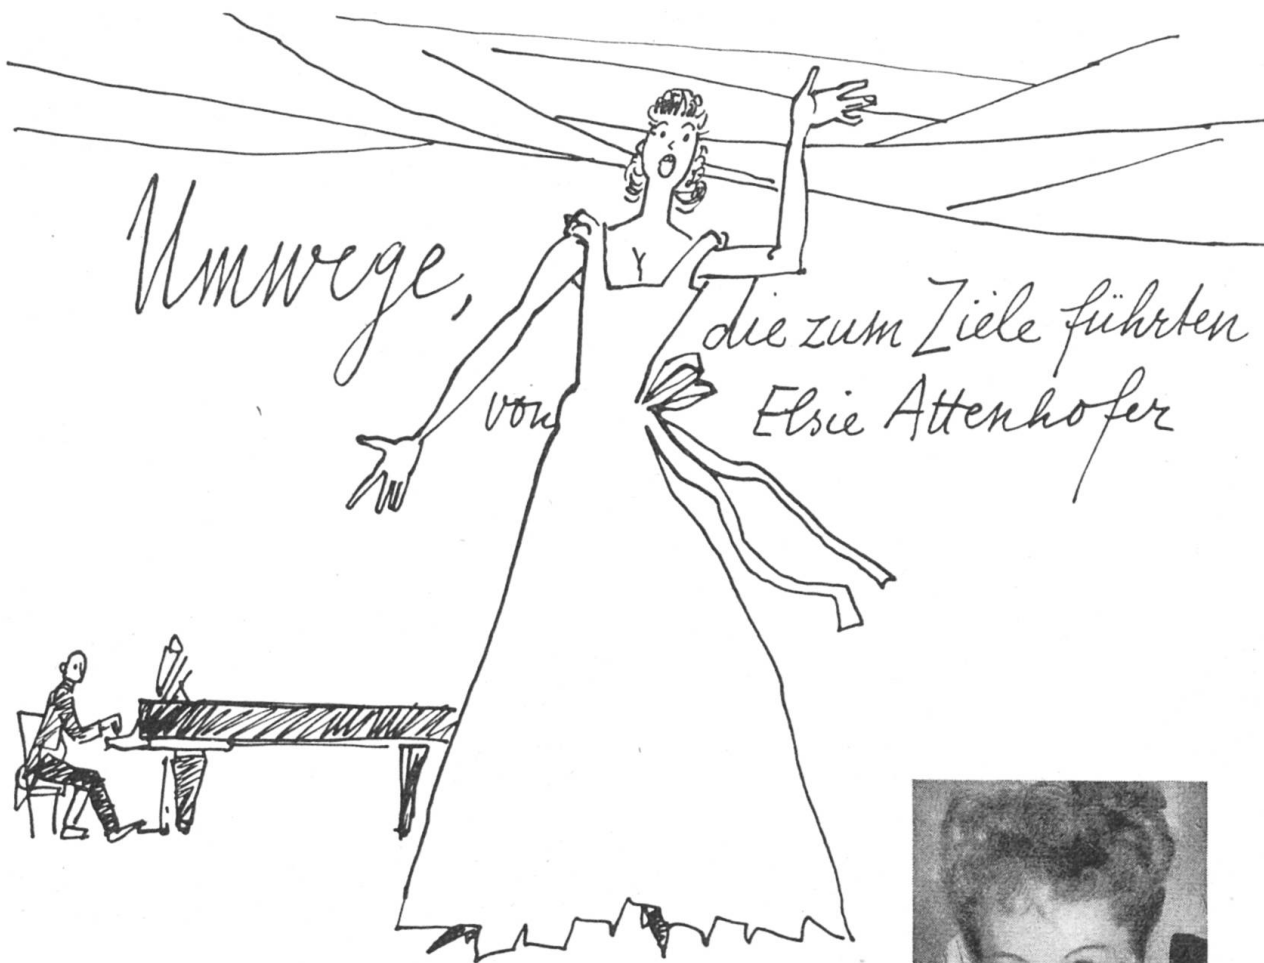 Umwege,
die zum Ziele führten
von Elsie Attenhofer